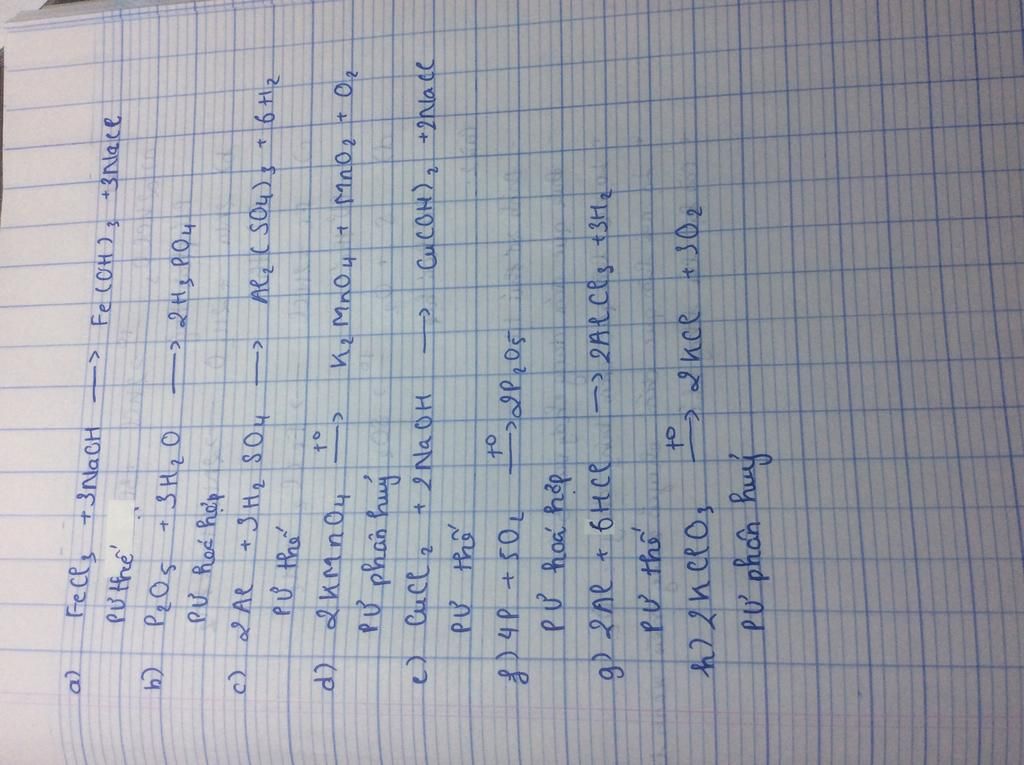 a) FeCl3 + 3NaOH → Fe(OH)3 + 3NaCl
PƯ thế
b) P2O5 + 3H2O → 2H3PO4
PƯ hoá hợp
c) 2Al + 3H2SO4 → Al2(SO4)3 + 6H2
PƯ thế
d) 2KMnO4 t° → K2MnO4 + MnO2 + O2
PƯ phân huỷ
e) CuCl2 + 2NaOH → Cu(OH)2 + 2NaCl
PƯ thế
f) 4P + 5O2 t° → 2P2O5
PƯ hoá hợp
g) 2Al + 6HCl → 2AlCl3 + 3H2
PƯ thế
h) 2KClO3 t° → 2KCl + 3O2
PƯ phân huỷ